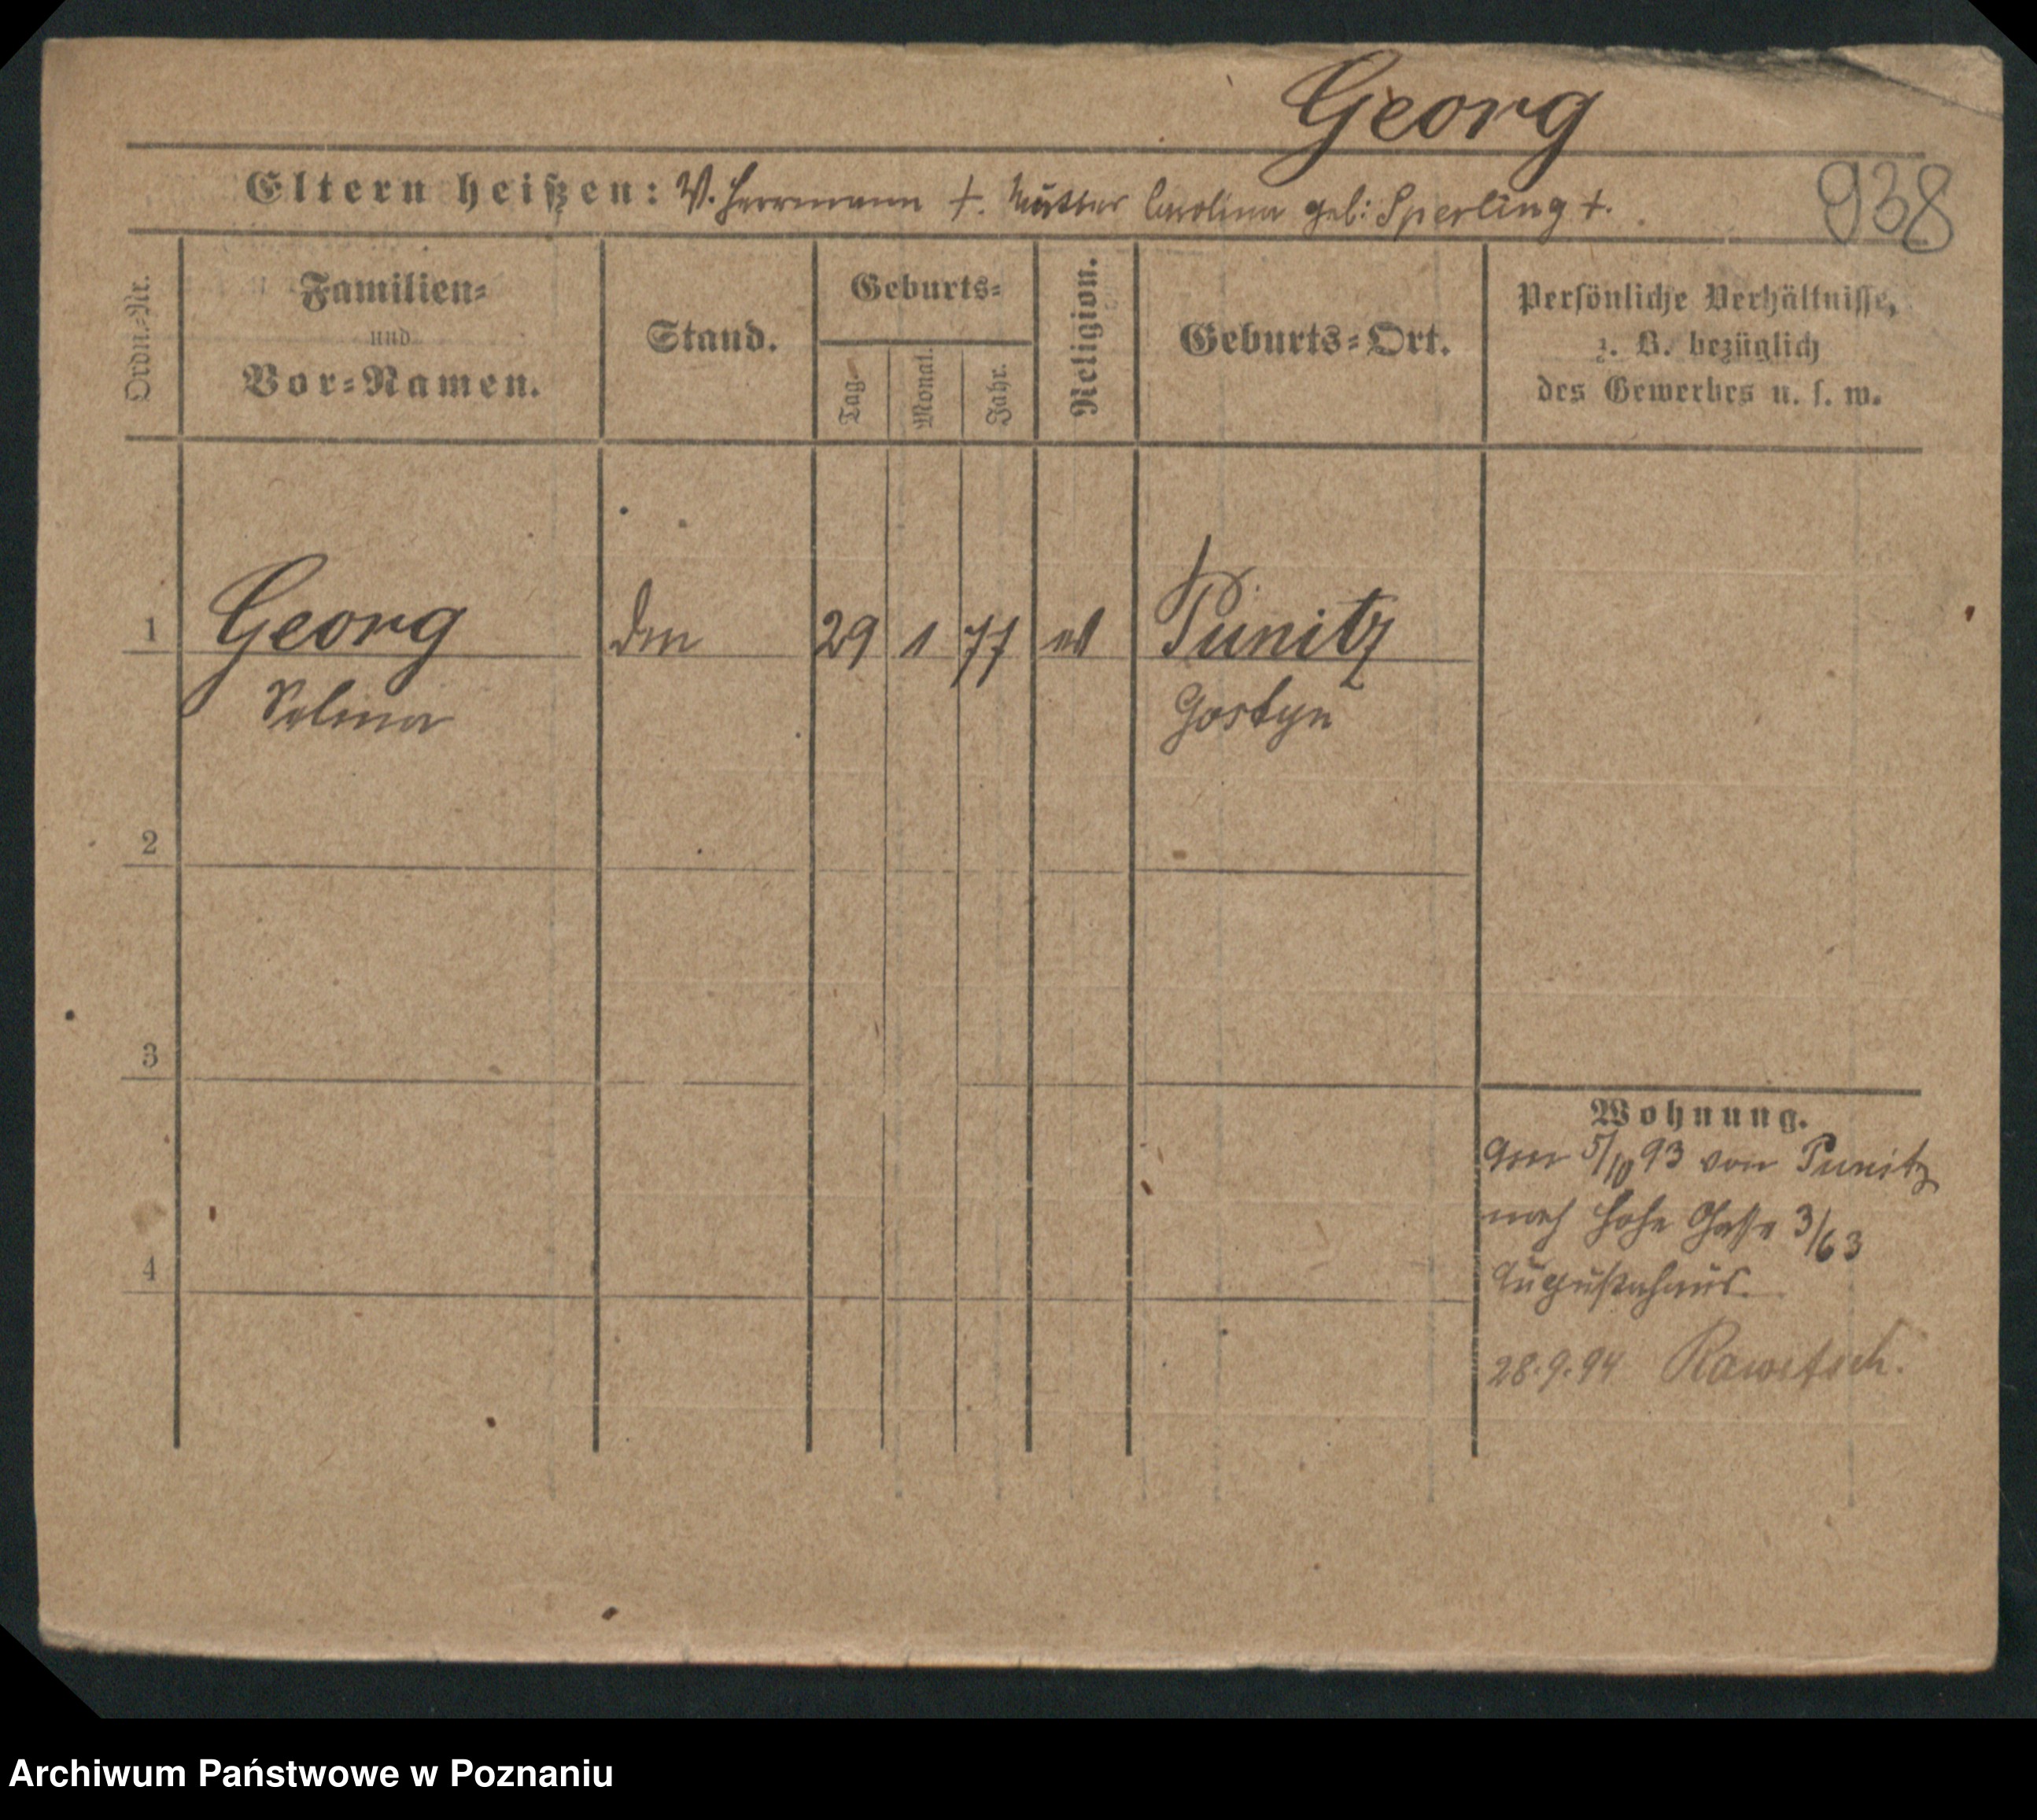 Georg
938
Eltern heißen: V. Herrmann +. Mutter Carolina geb: Sperling +.
Ordn.-Nr.
Familien-
und
Vor-Namen.
Stand.
Geburts-
Tag
Monat.
Jahr.
Religion.
Geburts-Ort.
Persönliche Verhältnisse,
z. B. bezüglich
des Gewerbes u. s. w.
1 Georg 29 1 77 ev Punitz
Selma Gostyn
2
3
4
Wohnung.
5/10 93 von Punitz
nach Hohe Gasse 3/63
Augustahaus.
28.9.94 Rawitsch.
Archiwum Państwowe w Poznaniu